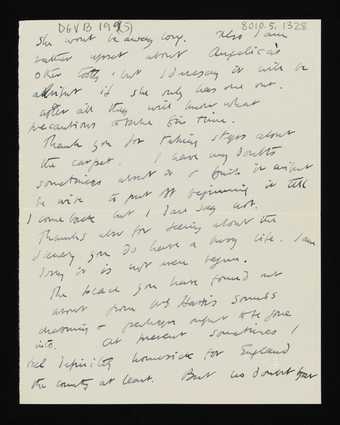 DGVB 19(5)
8010.5.1328
She wont be away long. Also I am
rather upset about Angelica's
other but I daresay it will be
alright if she only has one out.
after all they will know what
precautions to take in time.
Thank you for taking steps about
the carpet. I have my doubts
sometimes about it & it might
be wise to put off beginning it till
I come back but I dare say not.
Thanks also for seeing about the
you do have a busy life. I am
sorry it is not more begun.
The place you have found out
about from Harris sounds
charming & perhaps ought to be gone
into. At present sometimes I
feel definitely homesick for England
the country at least. But no doubt